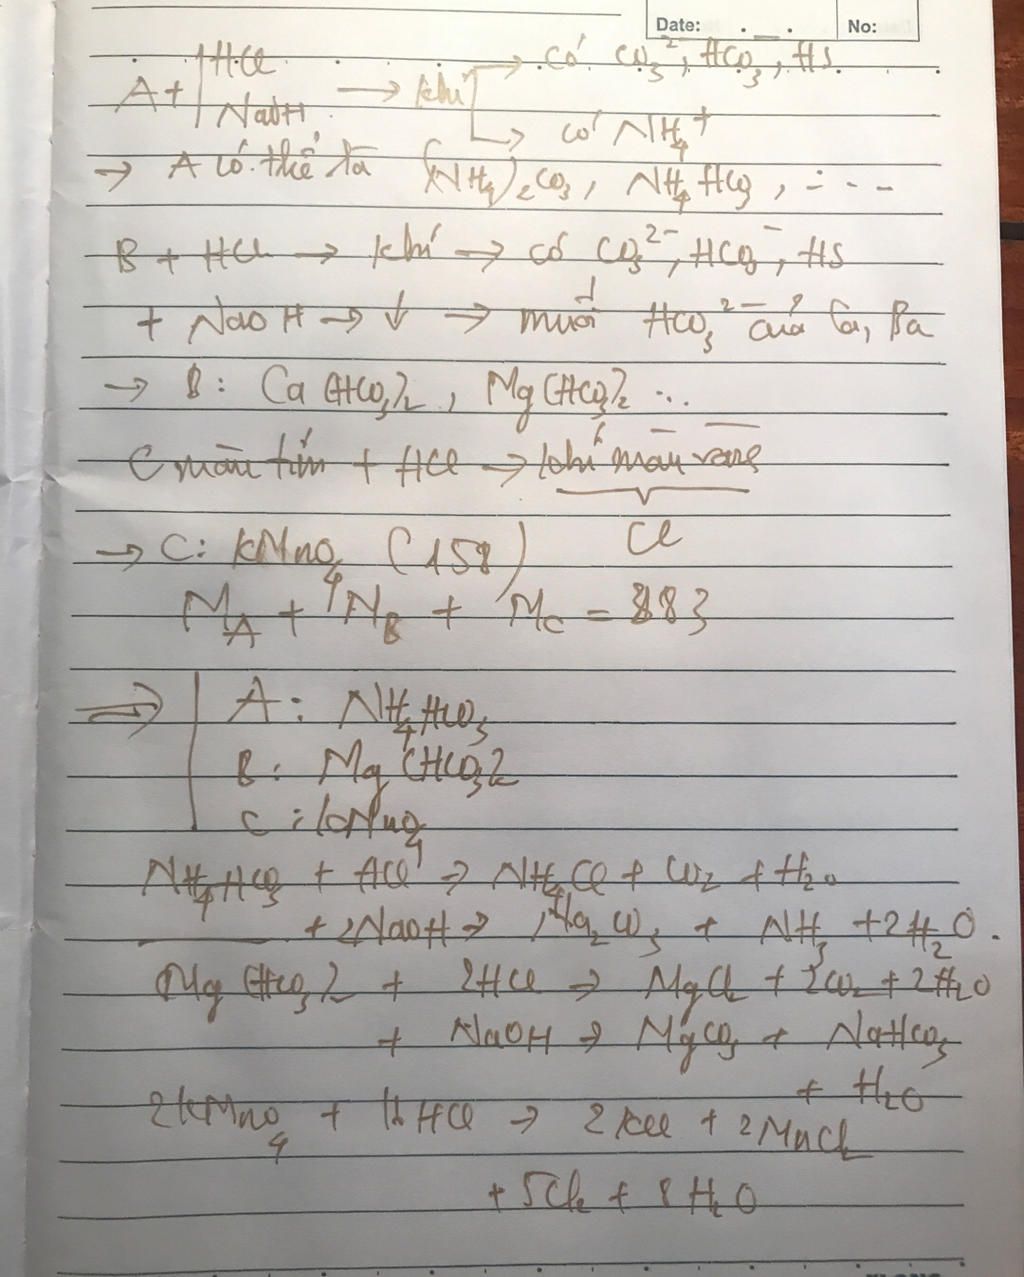 Date: . __ . No:
HCl → có CO₃²⁻, HCO₃⁻, HS
A + NaOH → khí
→ có NH₄⁺
→ A có thể là (NH₄)₂CO₃, NH₄HCO₃, ...
B + HCl → khí → có CO₃²⁻, HCO₃⁻, HS
+ NaOH → ↓ → muối HCO₃²⁻ của Ca, Ba
→ B: Ca(HCO₃)₂, Mg(HCO₃)₂ ...
C màu tím + HCl → khí màu vàng
Cl
→ C: KMnO₄ (158)
M_A + M_B + M_C = 383
⇒ A: NH₄HCO₃
B: Mg(HCO₃)₂
C: KMnO₄
NH₄HCO₃ + HCl → NH₄Cl + CO₂ + H₂O
+ 2NaOH → Na₂CO₃ + NH₃ + 2H₂O.
Mg(HCO₃)₂ + 2HCl → MgCl₂ + 2CO₂ + 2H₂O
+ NaOH → MgCO₃ + NaHCO₃
+ H₂O
2KMnO₄ + 16HCl → 2KCl + 2MnCl₂
+ 5Cl₂ + 8H₂O